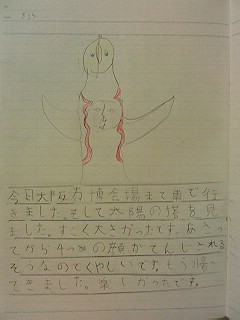 今日大阪万博会場まで車で行
きました。そして太陽の塔を見
ました。すごく大きかったです。あさっ
てから4つめの顔がてんじされる
そうなのでくやしいです。もう帰っ
てきました。楽しかったです。